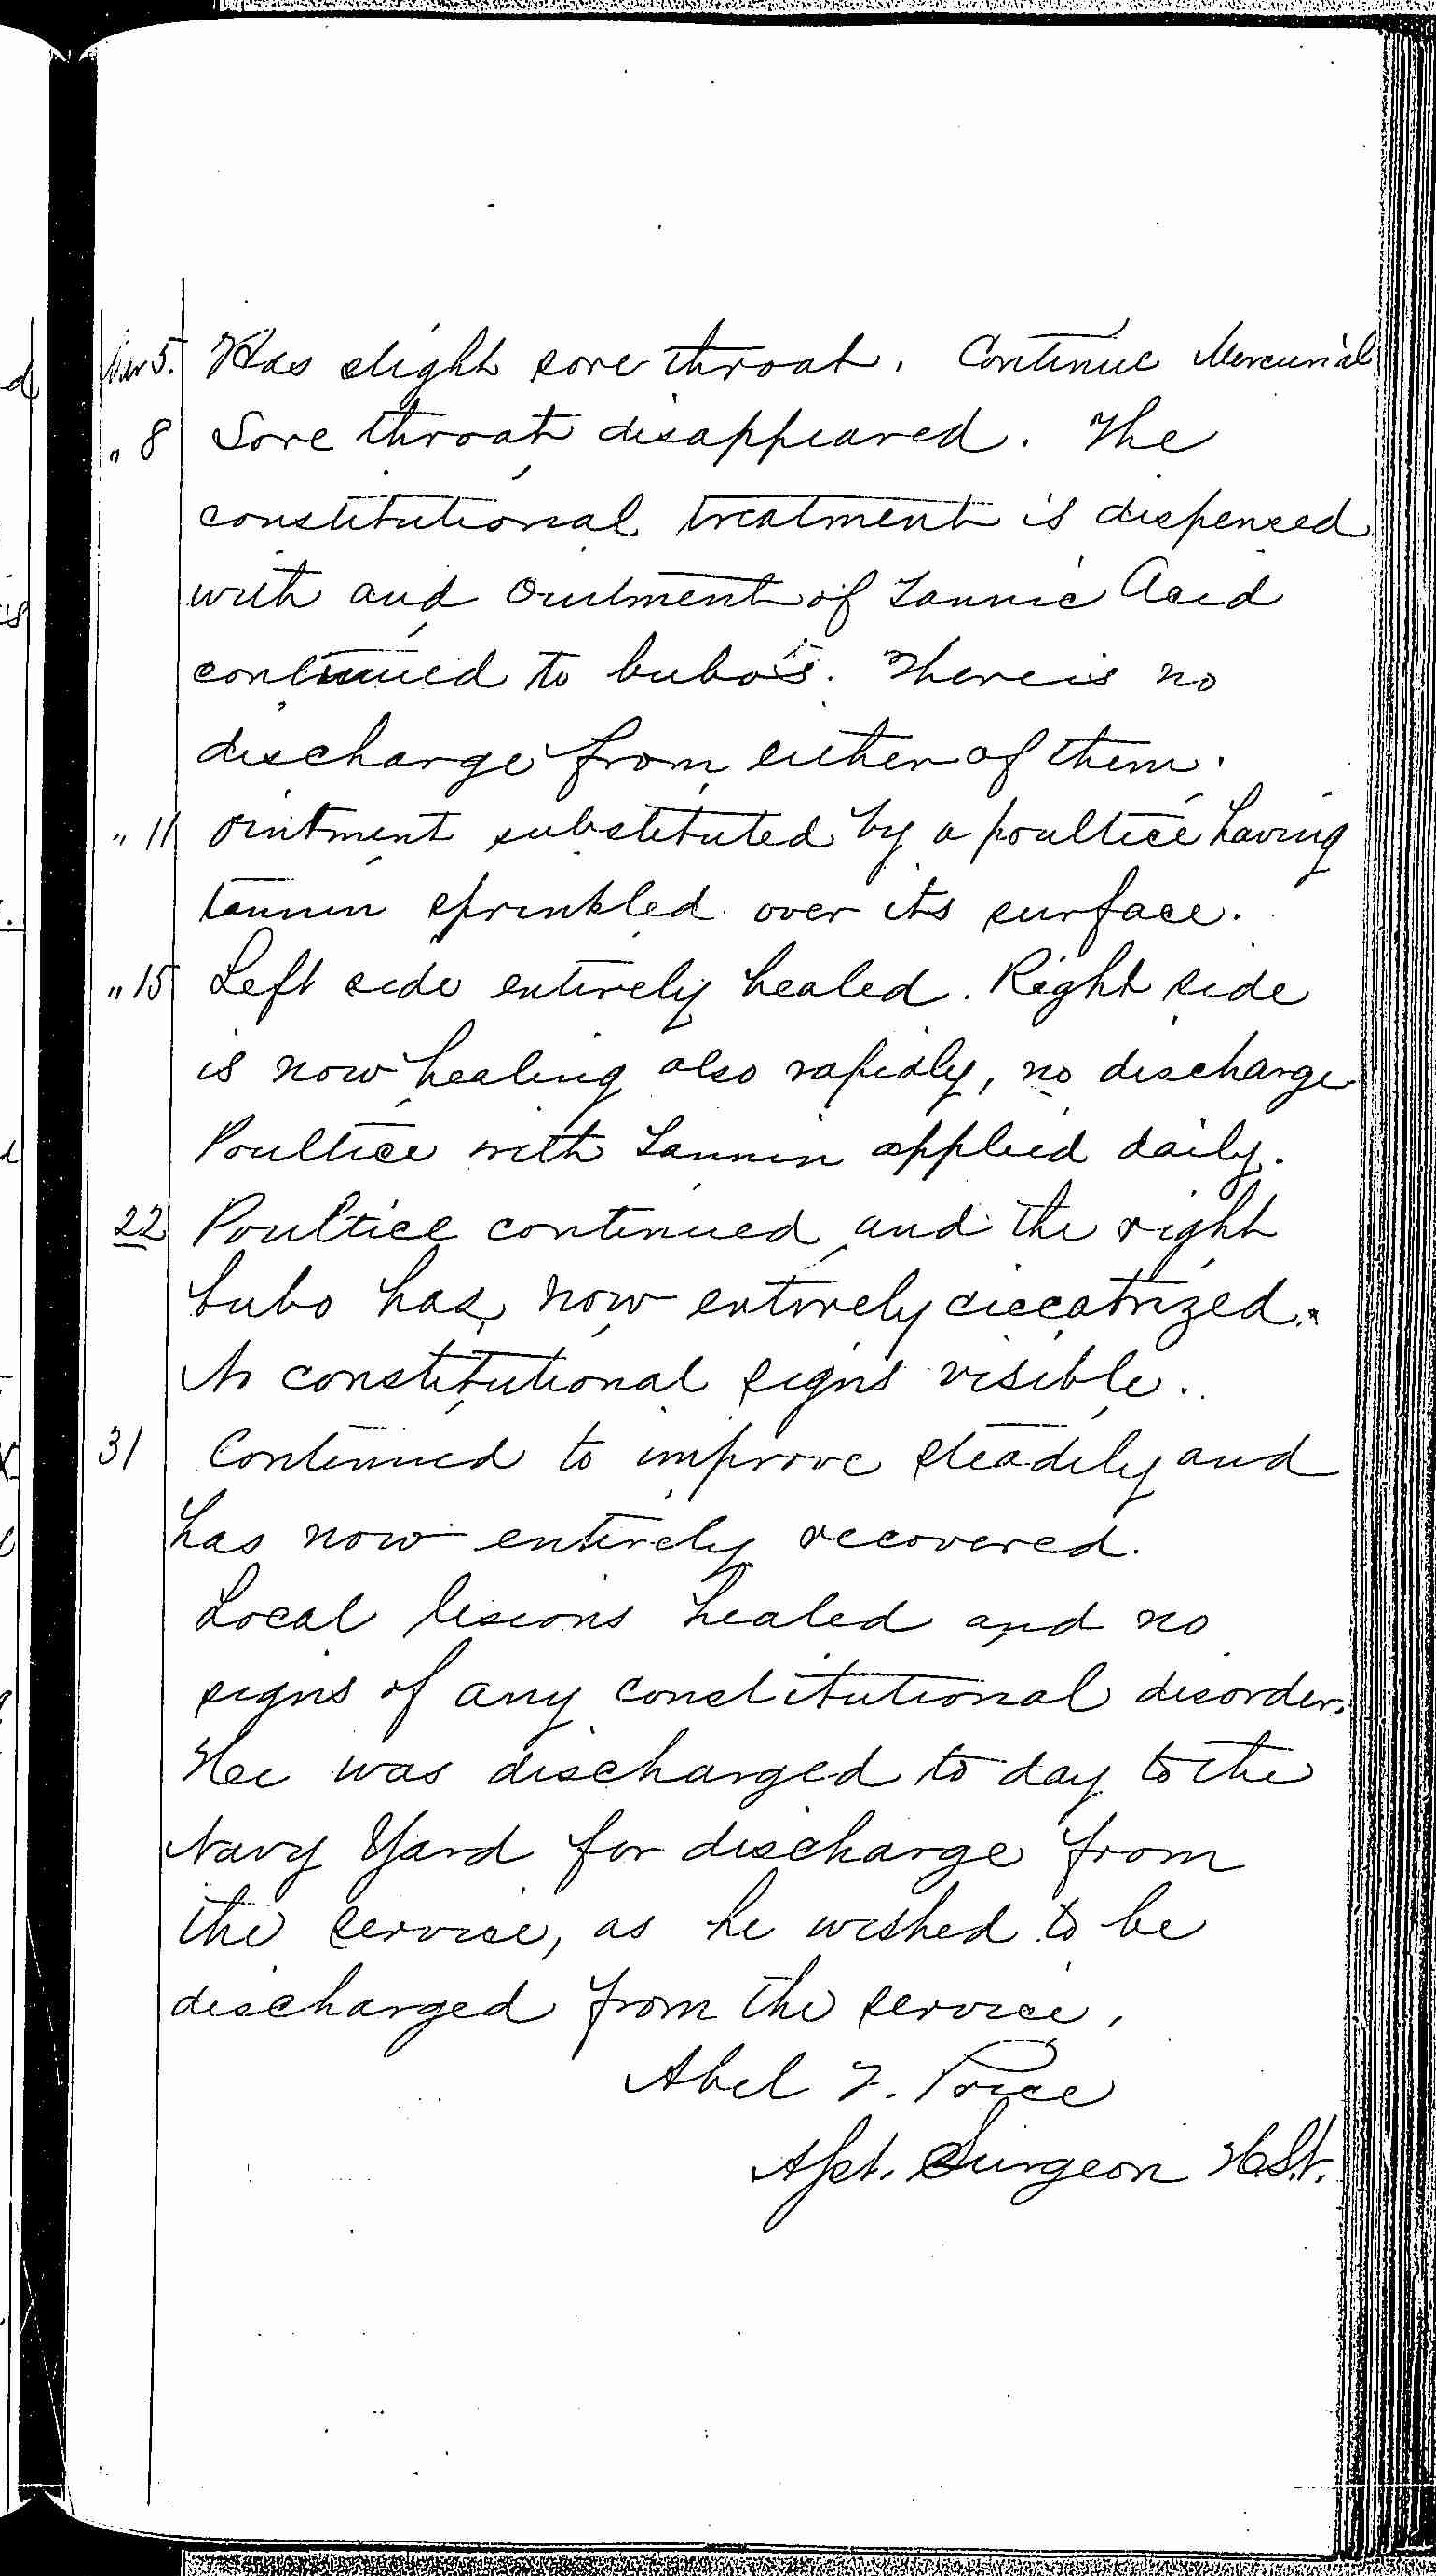 Mar 5. Has slight sore throat. Continue Mercurial
" 8 Sore throat disappeared. The
constitutional treatment is dispensed
with and Ointment of Tannic Acid
continued to bubo's. There is no
discharge from either of them.
" 11 Ointment substituted by a poultice having
tannin sprinkled over its surface.
" 15 Left side entirely healed. Right side
is now healing also rapidly, no discharge
Poultice with Tannin applied daily.
22 Poultice continued and the right
bubo has now entirely ciccatrized.
No constitutional signs visible.
31 Continued to improve steadily and
has now entirely recovered.
Local lesions healed and no
signs of any constitutional disorder.
He was discharged to day to the
Navy Yard for discharge from
the service, as he wished to be
discharged from the service.
Abel F. Price
Asst. Surgeon